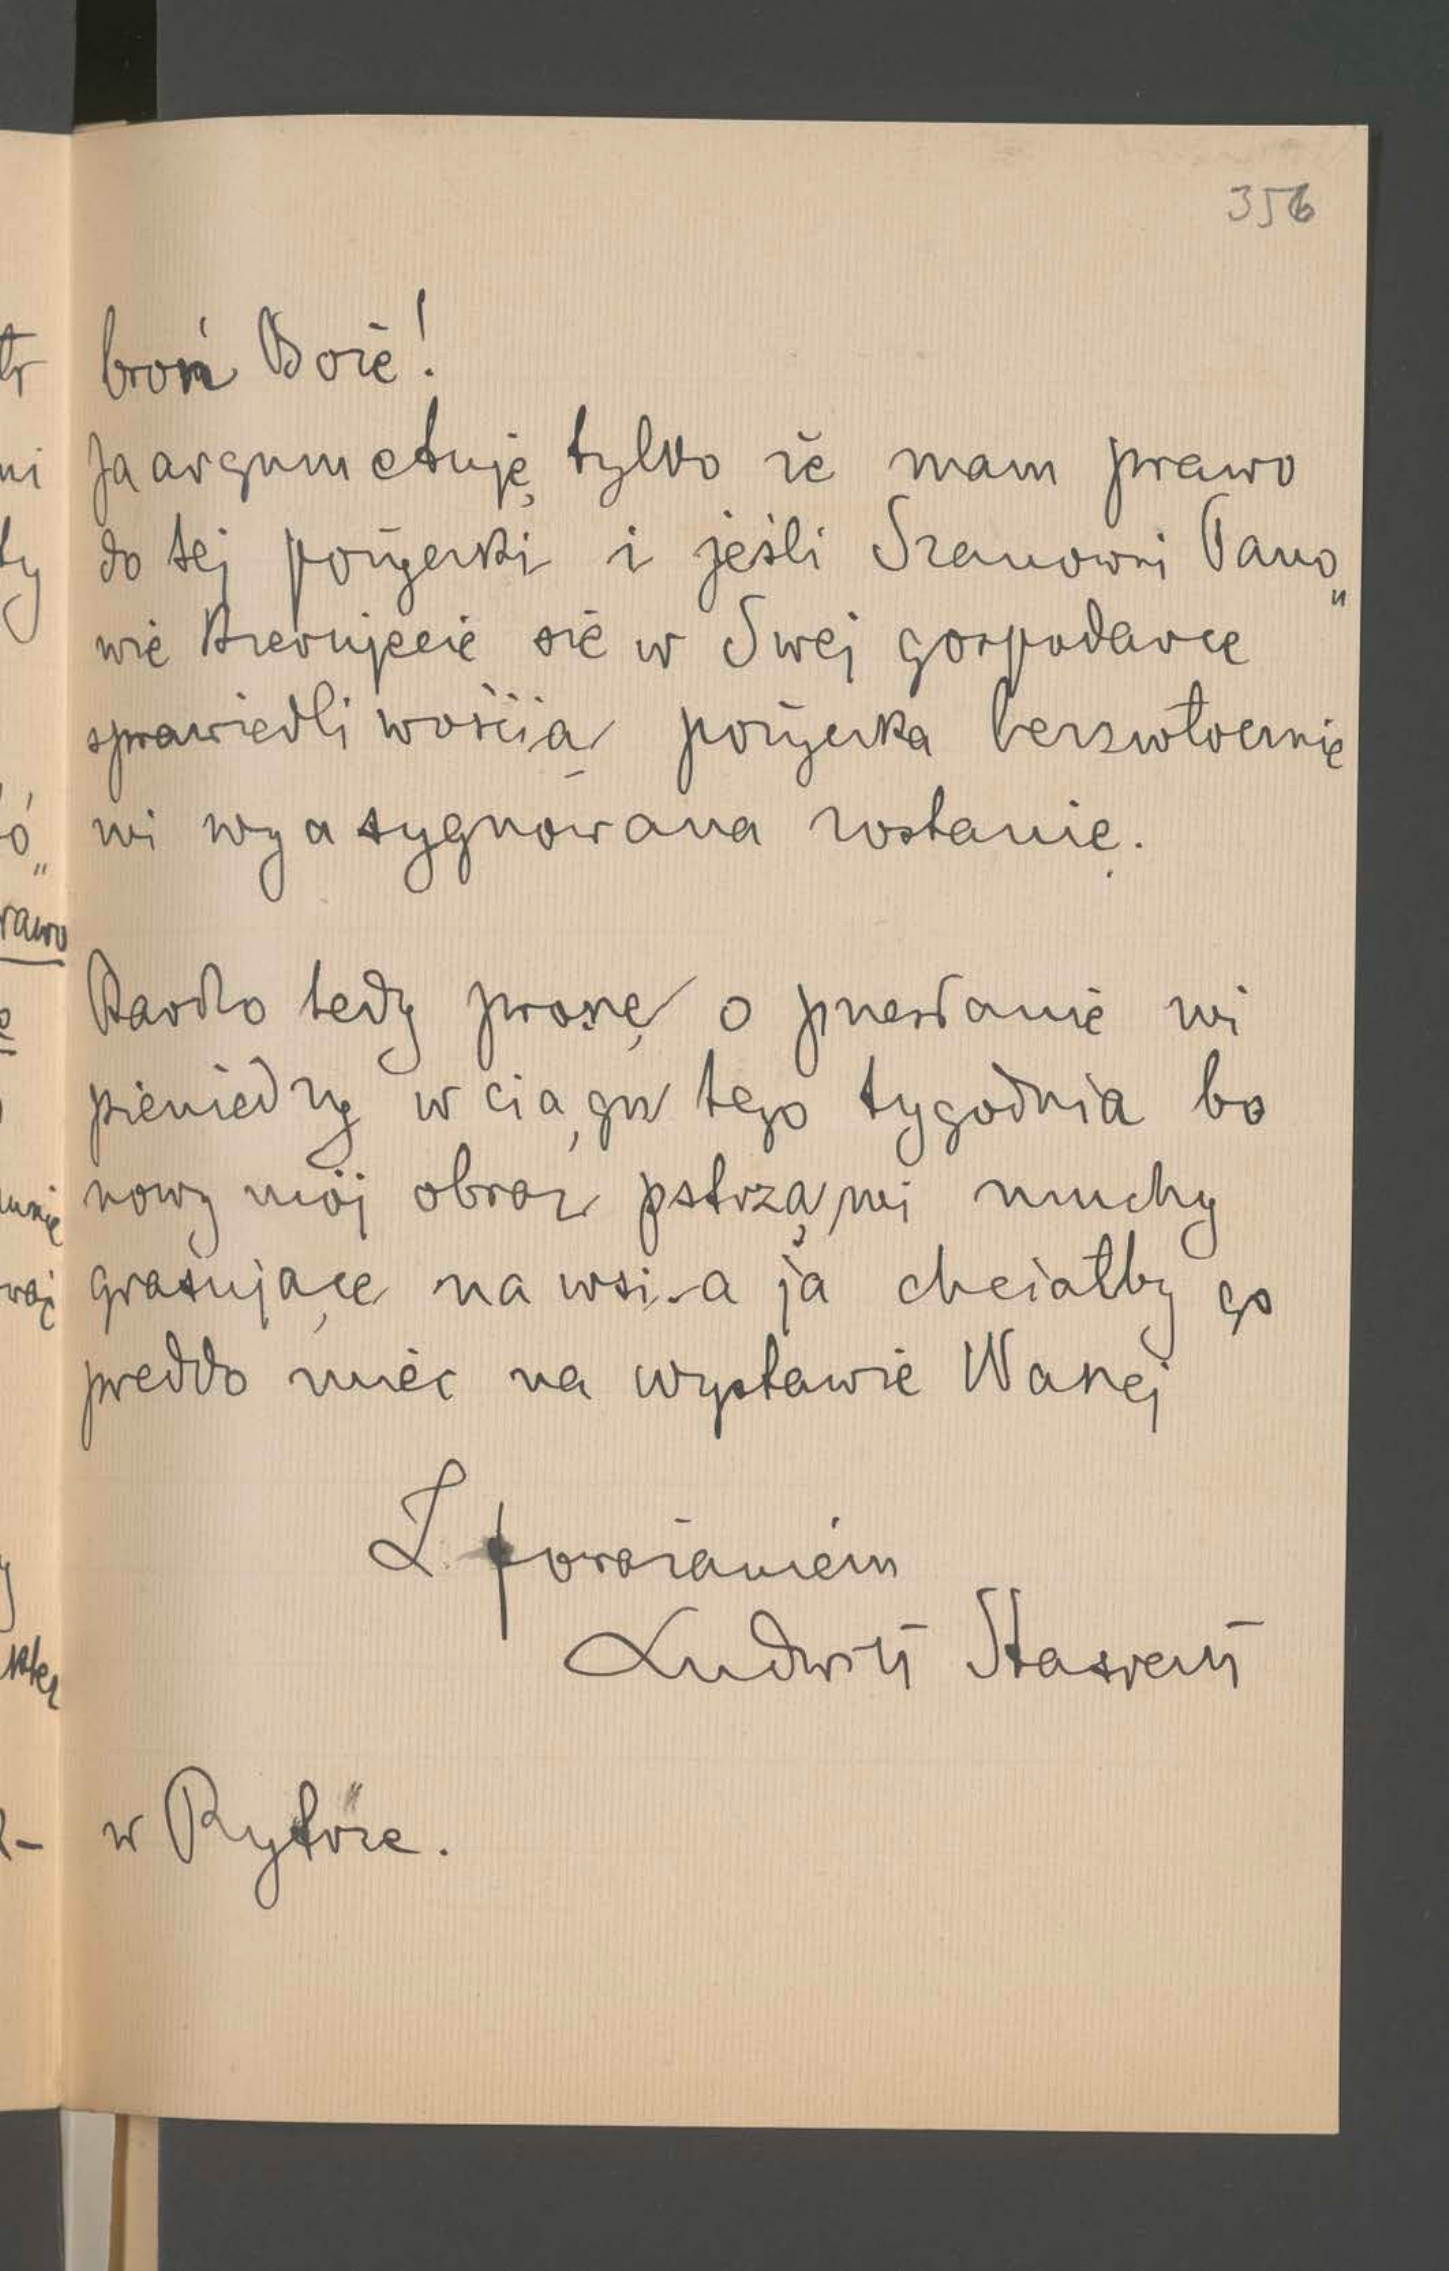 356
broń Boże!
Ja argumetuję tylko że mam prawo
do tej pożyczki i jeśli Szanowni Pano„
wie kierujecie się w Swej gospodarce
sprawiedliwością pożyczka bezzwłocznie
mi wyasygnowana zostanie.
Bardzo tedy proszę o przesłanie mi
pieniędzy w ciągu tego tygodnia bo
nowy mój obraz pstrzą mi muchy
grasujące na wsi - a ja chciałby go
prędko mieć na wystawie Waszej
Z poważaniem
Ludwik Stasiak
w Rytöze.